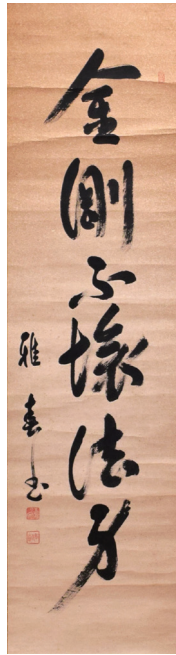 金剛不壞法身
雅春書